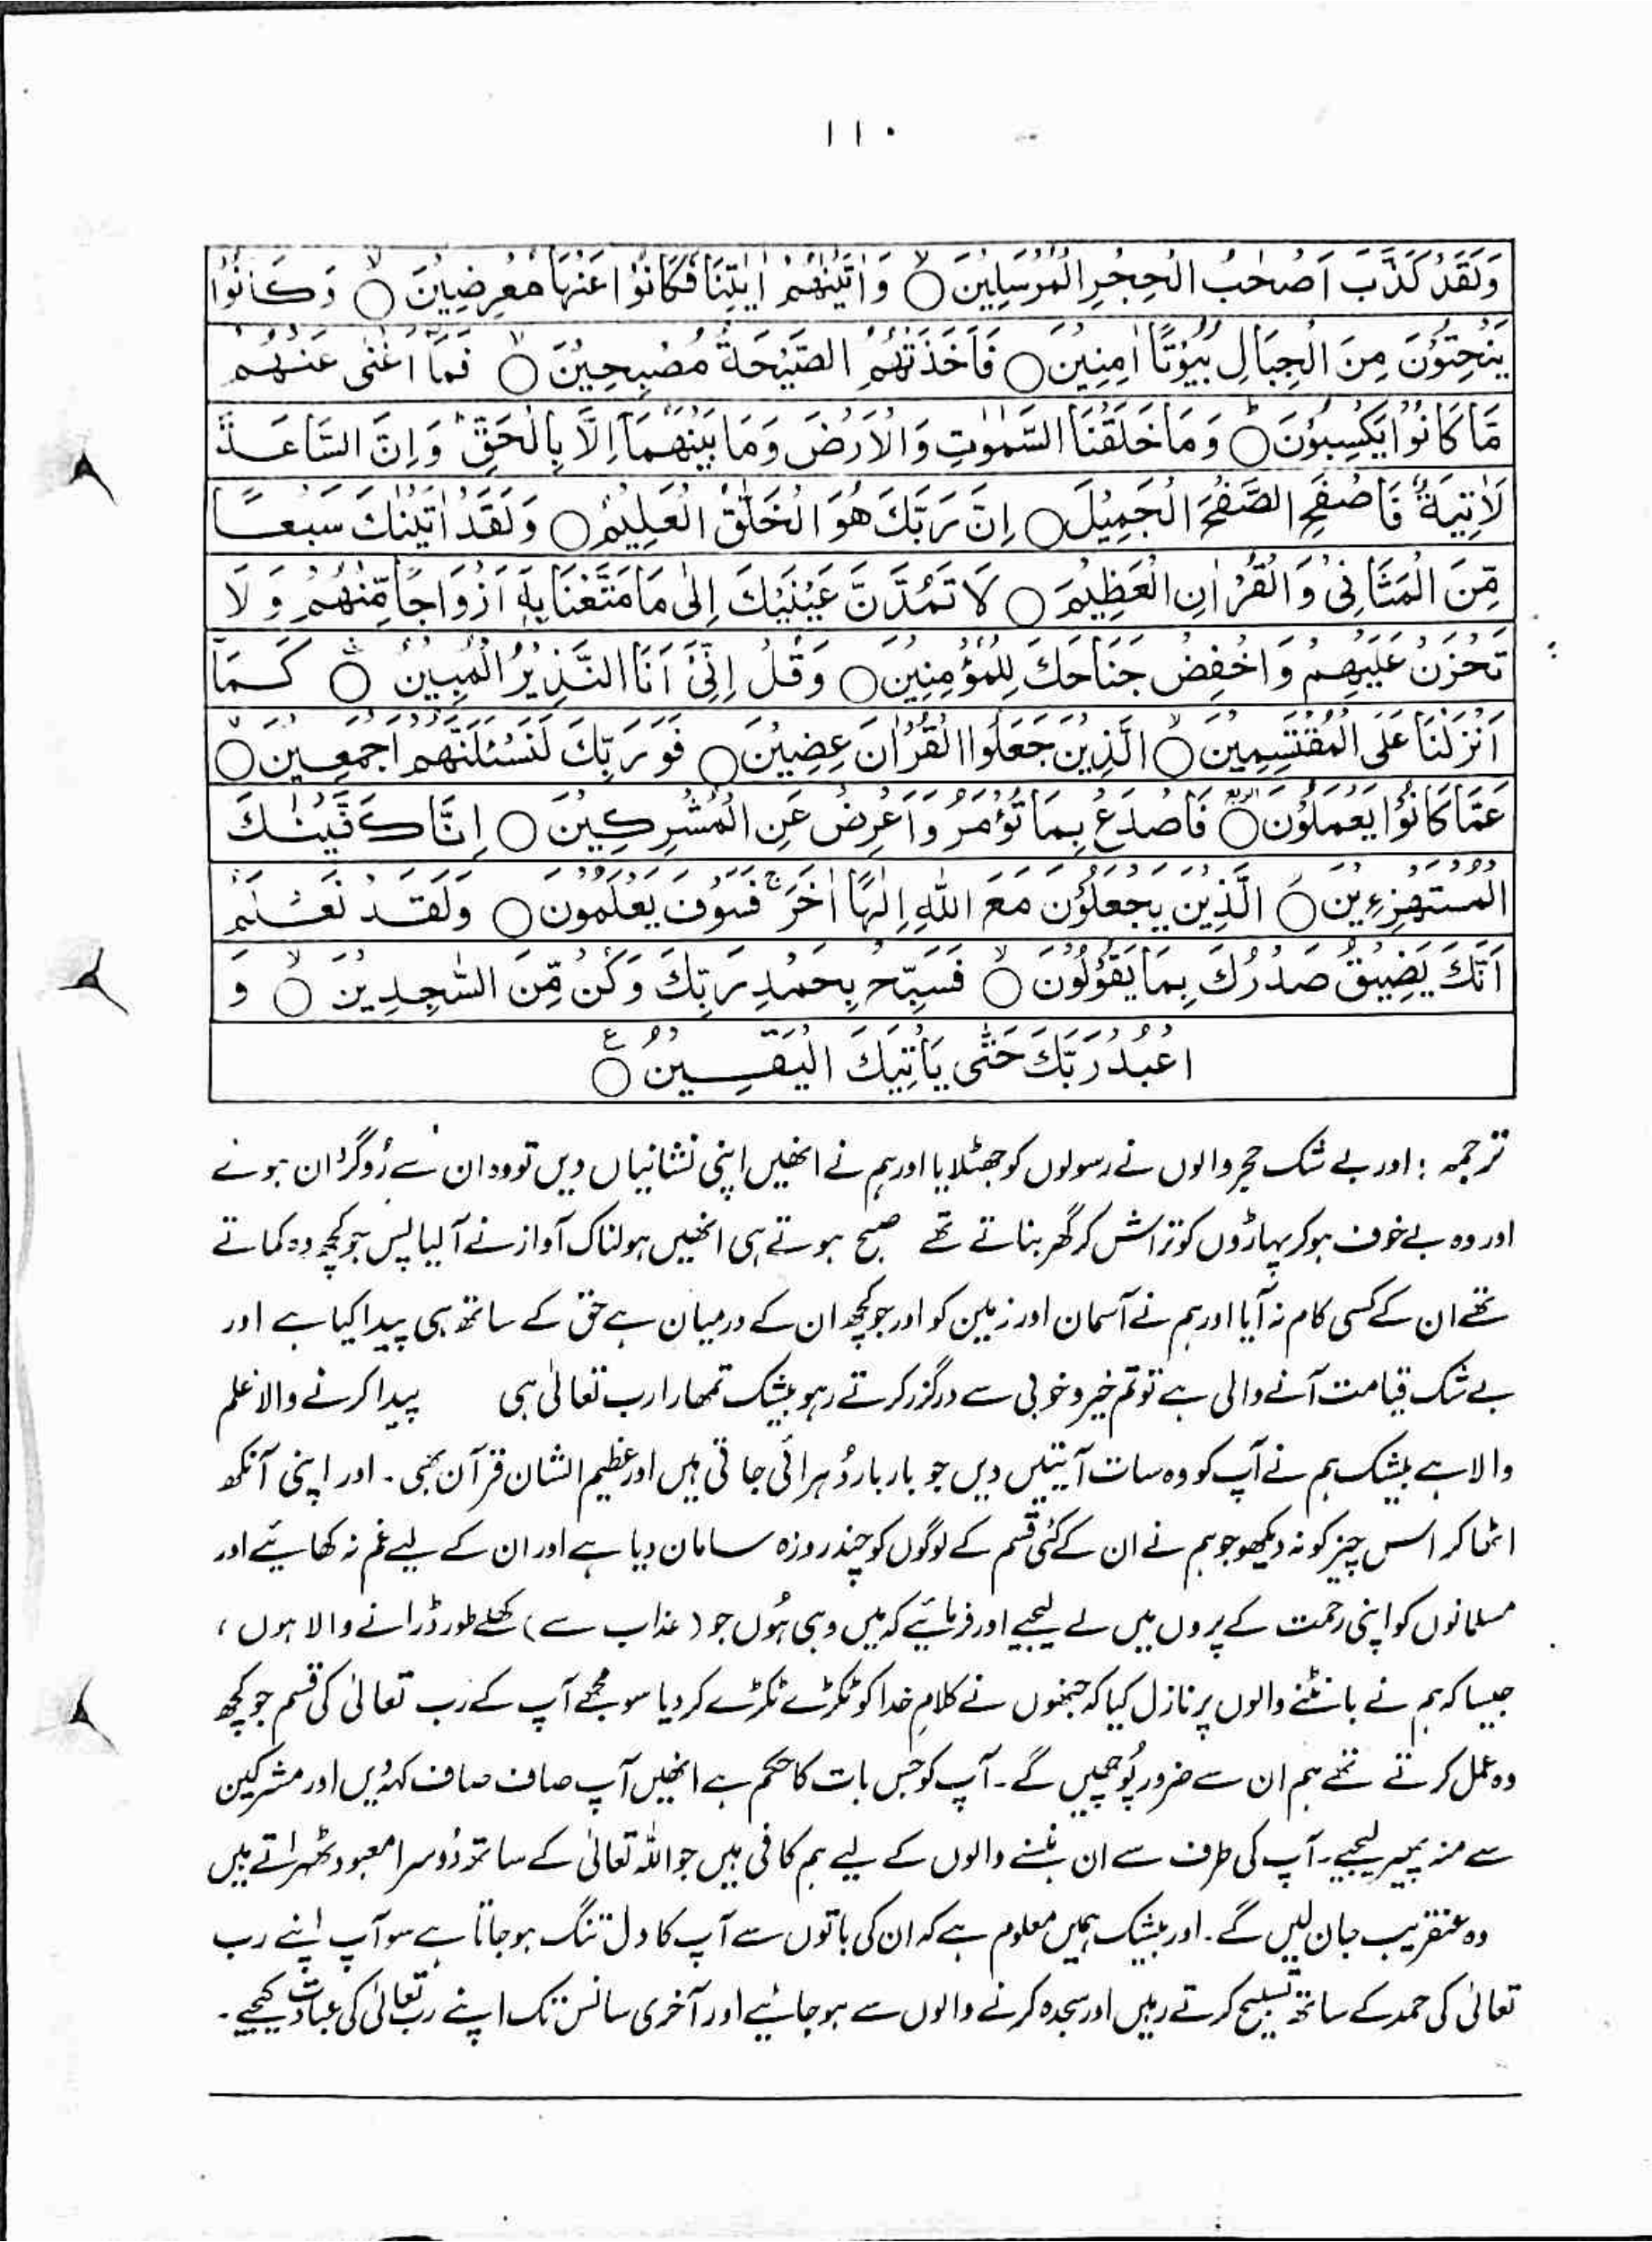 ۱۱۰
وَلَقَدْ كَذَّبَ اَصْحٰبُ الْحِجْرِ الْمُرْسَلِيْنَ ۙ وَاٰتَيْنٰهُمْ اٰيٰتِنَا فَكَانُوْا عَنْهَا مُعْرِضِيْنَ ۙ وَكَانُوْا
يَنْحِتُوْنَ مِنَ الْجِبَالِ بُيُوْتًا اٰمِنِيْنَ ۝ فَاَخَذَتْهُمُ الصَّيْحَةُ مُصْبِحِيْنَ ۙ فَمَآ اَغْنٰى عَنْهُمْ
مَّا كَانُوْا يَكْسِبُوْنَ ۝ؕ وَمَا خَلَقْنَا السَّمٰوٰتِ وَالْاَرْضَ وَمَا بَيْنَهُمَآ اِلَّا بِالْحَقِّ ؕ وَاِنَّ السَّاعَةَ
لَاٰتِيَةٌ فَاصْفَحِ الصَّفْحَ الْجَمِيْلَ ۝ اِنَّ رَبَّكَ هُوَ الْخَلّٰقُ الْعَلِيْمُ ۝ وَلَقَدْ اٰتَيْنٰكَ سَبْعًا
مِّنَ الْمَثَانِىْ وَالْقُرْاٰنَ الْعَظِيْمَ ۝ لَا تَمُدَّنَّ عَيْنَيْكَ اِلٰى مَا مَتَّعْنَا بِهٖٓ اَزْوَاجًا مِّنْهُمْ وَلَا
تَحْزَنْ عَلَيْهِمْ وَاخْفِضْ جَنَاحَكَ لِلْمُؤْمِنِيْنَ ۝ وَقُلْ اِنِّىْٓ اَنَا النَّذِيْرُ الْمُبِيْنُ ۝ كَمَآ
اَنْزَلْنَا عَلَى الْمُقْتَسِمِيْنَ ۙ الَّذِيْنَ جَعَلُوا الْقُرْاٰنَ عِضِيْنَ ۝ فَوَرَبِّكَ لَنَسْئَلَنَّهُمْ اَجْمَعِيْنَ ۙ
عَمَّا كَانُوْا يَعْمَلُوْنَ ۝ فَاصْدَعْ بِمَا تُؤْمَرُ وَاَعْرِضْ عَنِ الْمُشْرِكِيْنَ ۝ اِنَّا كَفَيْنٰكَ
الْمُسْتَهْزِءِيْنَ ۙ الَّذِيْنَ يَجْعَلُوْنَ مَعَ اللّٰهِ اِلٰهًا اٰخَرَ ۚ فَسَوْفَ يَعْلَمُوْنَ ۝ وَلَقَدْ نَعْلَمُ
اَنَّكَ يَضِيْقُ صَدْرُكَ بِمَا يَقُوْلُوْنَ ۙ فَسَبِّحْ بِحَمْدِ رَبِّكَ وَكُنْ مِّنَ السّٰجِدِيْنَ ۙ وَ
اعْبُدْ رَبَّكَ حَتّٰى يَاْتِيَكَ الْيَقِيْنُ ۝ع
ترجمہ : اور بے شک حجر والوں نے رسولوں کو جھٹلایا اور ہم نے انھیں اپنی نشانیاں دیں تو وہ ان سے رُوگرداں ہوئے
اور وہ بےخوف ہو کر پہاڑوں کو تراش کر گھر بناتے تھے صبح ہوتے ہی انھیں ہولناک آواز نے آ لیا پس جو کچھ وہ کماتے
تھے ان کے کسی کام نہ آیا اور ہم نے آسمان اور زمین کو اور جو کچھ ان کے درمیان ہے حق کے ساتھ ہی پیدا کیا ہے اور
بے شک قیامت آنے والی ہے تو تم خیر و خوبی سے درگزر کرتے رہو بیشک تمھارا رب تعالیٰ ہی پیدا کرنے والا علم
والا ہے بیشک ہم نے آپ کو وہ سات آیتیں دیں جو بار بار دُہرائی جاتی ہیں اور عظیم الشان قرآن بھی۔ اور اپنی آنکھ
اٹھا کر اس چیز کو نہ دیکھو جو ہم نے ان کے کئی قسم کے لوگوں کو چند روزہ سامان دیا ہے اور ان کے لیے غم نہ کھائیے اور
مسلمانوں کو اپنی رحمت کے پروں میں لے لیجیے اور فرمائیے کہ میں وہی ہُوں جو (عذاب سے) کھلے طور ڈرانے والا ہوں ،
جیسا کہ ہم نے بانٹنے والوں پر نازل کیا کہ جنھوں نے کلامِ خدا کو ٹکڑے ٹکڑے کر دیا سو مجھے آپ کے رب تعالیٰ کی قسم جو کچھ
وہ عمل کرتے تھے ہم ان سے ضرور پُوچھیں گے۔ آپ کو جس بات کا حکم ہے انھیں آپ صاف صاف کہہ دیں اور مشرکین
سے منہ پھیر لیجیے۔ آپ کی طرف سے ان ہنسنے والوں کے لیے ہم کافی ہیں جو اللہ تعالیٰ کے ساتھ دُوسرا معبود ٹھہراتے ہیں
وہ عنقریب جان لیں گے۔ اور بیشک ہمیں معلوم ہے کہ ان کی باتوں سے آپ کا دل تنگ ہو جاتا ہے سو آپ اپنے رب
تعالیٰ کی حمد کے ساتھ تسبیح کرتے رہیں اور سجدہ کرنے والوں سے ہو جائیے اور آخری سانس تک اپنے رب تعالیٰ کی عبادت کیجیے۔